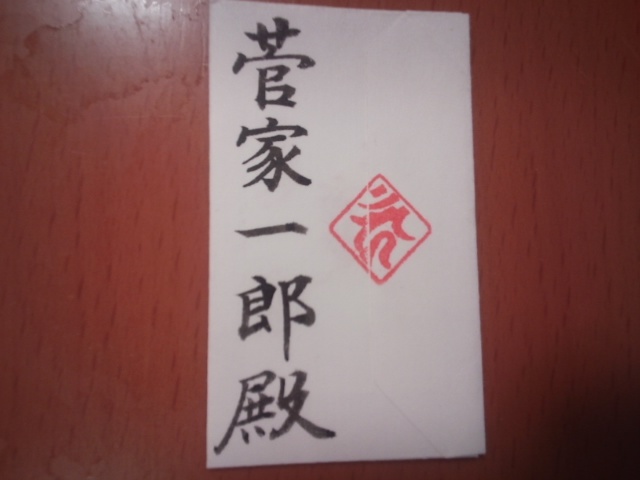 菅家一郎殿